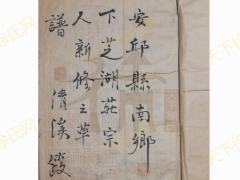 安邱縣南鄉
下芝湖莊宗
人新修之草
譜 清溪題